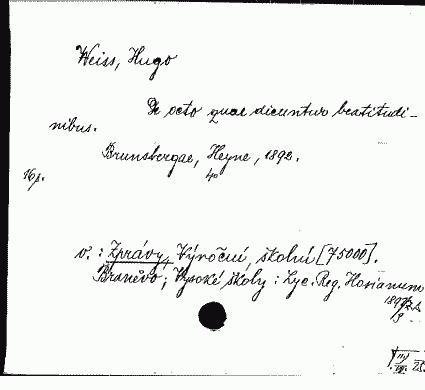 Weiss, Hugo
De octo quae dicuntur beatitudi-
nibus.
Brunsbergae, Heyne, 1892.
4°
16 s.
v.: Zprávy, Výroční, školní [75000].
Braněvo; Vysoké školy: Lyc. Reg. Hosianum